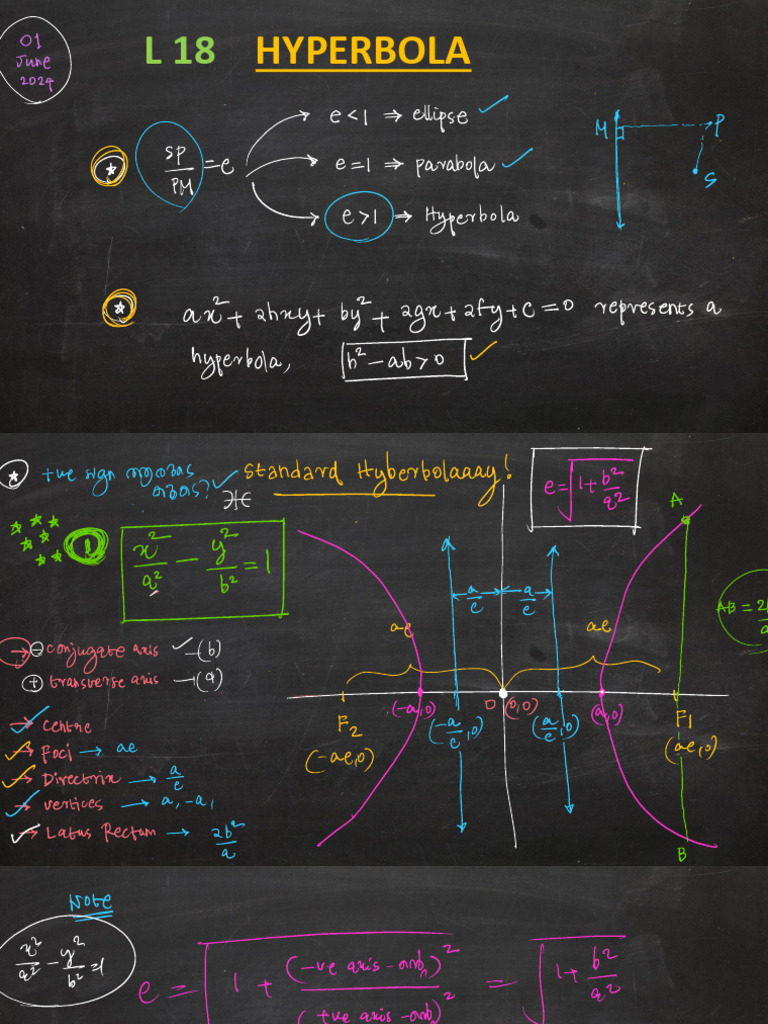 01
June
2024
L 18 HYPERBOLA
SP/PM = e
e < 1 ⇒ ellipse ✓
e = 1 ⇒ parabola ✓
e > 1 ⇒ Hyperbola
M
P
S
ax² + 2hxy + by² + 2gx + 2fy + c = 0 represents a
hyperbola, h² - ab > 0 ✓
+ve sign
Standard Hyberbolaaay!
e = √(1 + b²/a²)
1
x²/a² - y²/b² = 1
A
a/e
a/e
AB = 2
ae
ae
→ ⊖ conjugate axis ✓ -(b)
⊕ transverse axis → (a)
→ centre
→ Foci → ae
→ Directrix → a/e
→ vertices → a, -a,
→ Latus Rectum → 2b²/a
(-a,0)
O
(0,0)
(a,0)
F₂
(-a/e,0)
(a/e,0)
F₁
(-ae,0)
(ae,0)
B
Note
x²/a² - y²/b² = 1
e = √(1 + (-ve axis)²/(+ve axis)²) = √(1 + b²/a²)